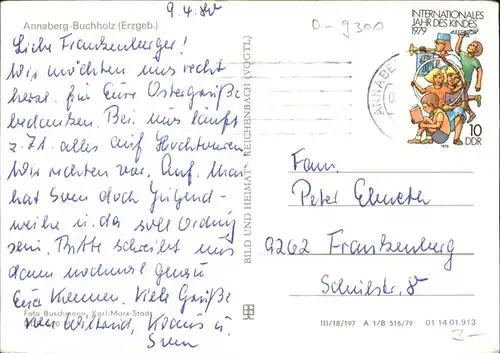 9.4.80
0-9300
Annaberg-Buchholz (Erzgeb.)
Liebe Frankenberger!
Wir möchten uns recht
herzl. für Eure Ostergrüße
bedanken. Bei uns läuft
z. Zt. alles auf Hochtouren
Wir richten vor. Anf. Mai
hat Sven doch Jugend-
weihe u. da soll Ordnung
sein. Bitte schreibt uns
dann nochmal genau
Euer Kommen. Viele Grüße
von Wieland, Klaus u.
Sven
Foto Buschmann, Karl-Marx-Stadt
BILD UND HEIMAT REICHENBACH (VOGTL)
INTERNATIONALES
JAHR DES KINDES
1979
10
DDR
1979
ANNABE
Fam.
Peter
9262 Frankenberg
Schulstr. 8
III/18/197 A 1/B 516/79 01 14 01 913
3-